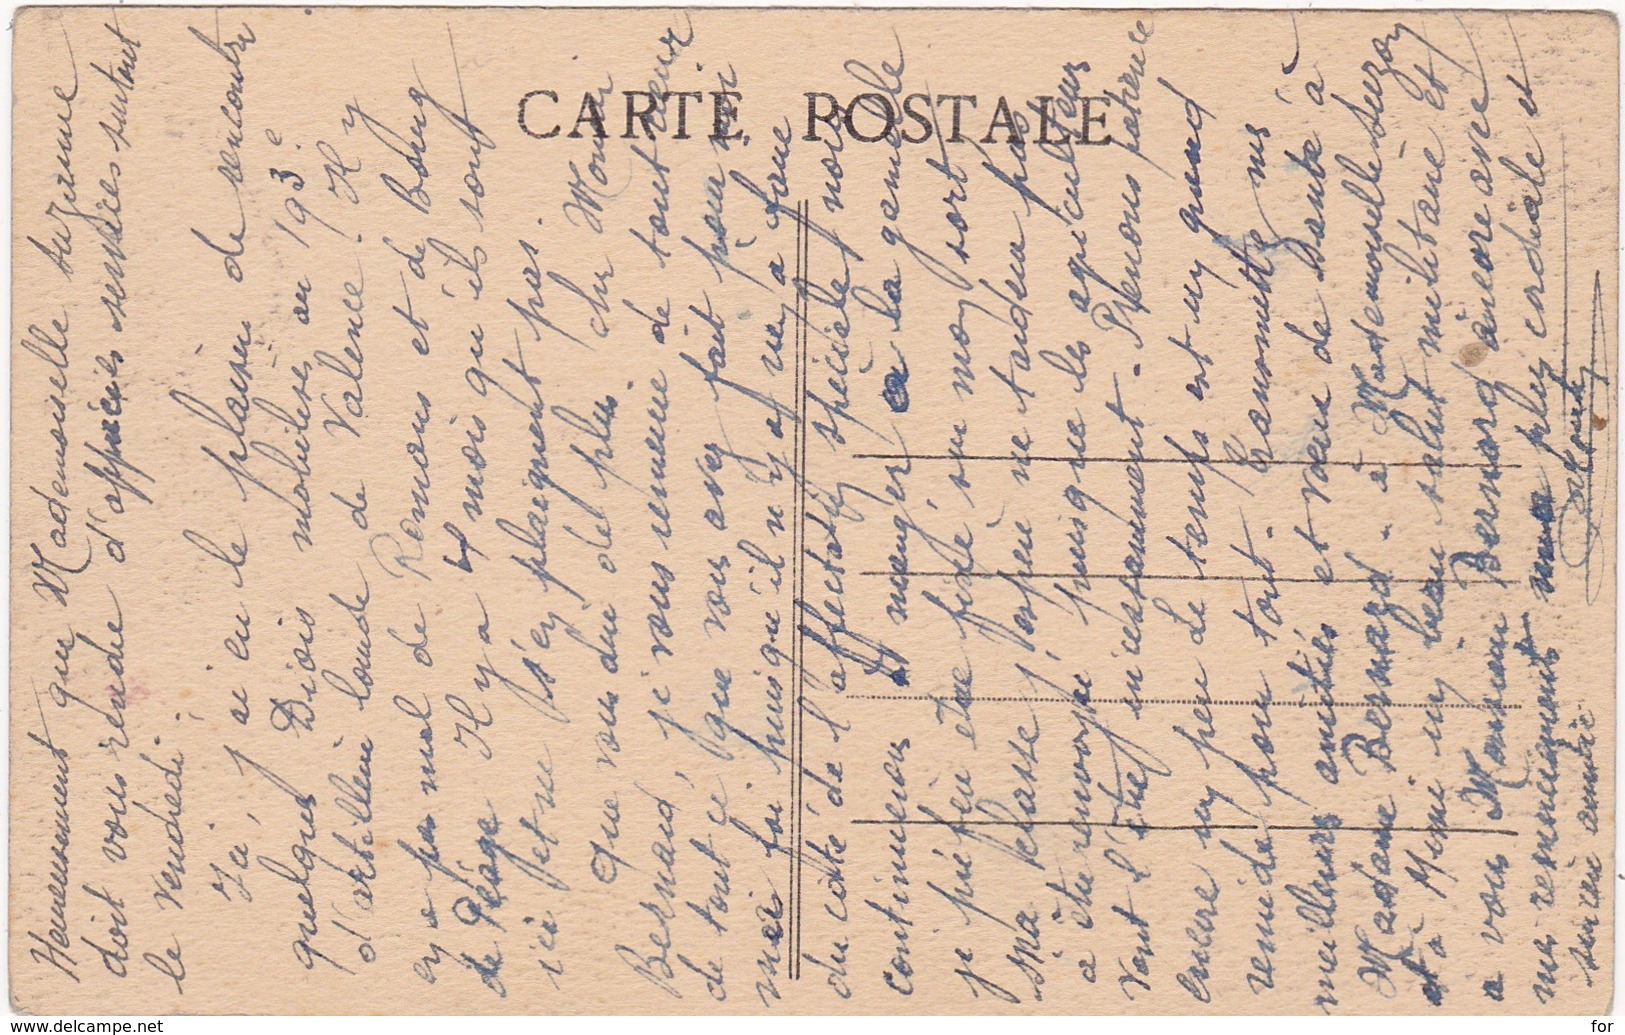 CARTE POSTALE
Heureusement que Mademoiselle Suzanne
doit vous rendre d'appréciés services surtout
le Vendredi.
J'ai, eu le plaisir de rencontrer
quelques Diois mobilisés au 193e
d'artillerie lourde de Valence. Il y
en a pas mal de Romans et de Bourg
de Péage. Il y a 4 mois qu'ils sont
ici et ne s'en plaignent pas.
Que vous dire de plus, cher Monsieur
Bernard, je vous remercie de tout cœur
de tout ce que vous avez fait pour moi
puisqu'il n'y a rien à faire
du côté de l'affectation spéciale, nous
continuerons à manger à la gamelle
je préfère être fixé sur mon sort
Ma classe j'espère ne tardera pas
à être renvoyée puisque les agriculteurs
vont l'être incessamment. Prenons patience
encore un peu le temps est un grand
remède pour tout. Transmettez mes
meilleures amitiés et vœux de Santé à
Madame Bernard. à Mademoiselle Suzon
et à Mimi un beau salut militaire et
à vous Monsieur Bernard encore avec
mes remerciements ma plus cordiale et
sincère amitié
www.delcampe.net
for